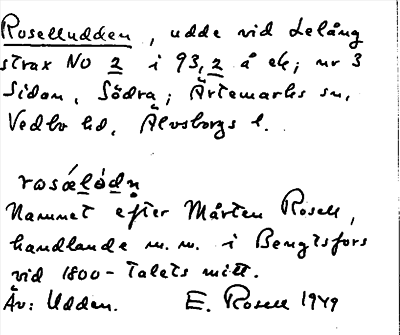 Roselludden, udde vid Lelång
strax NO 2 i 93,2 å ek; nr 3
Sidan, Södra; Ärtemarks sn,
Vedbo hd, Älvsborgs l.
rosǽlúdn̥
Namnet efter Mårten Rosell,
handlande m.m. i Bengtsfors
vid 1800-talets mitt.
Äv: Udden. E. Rosell 1949